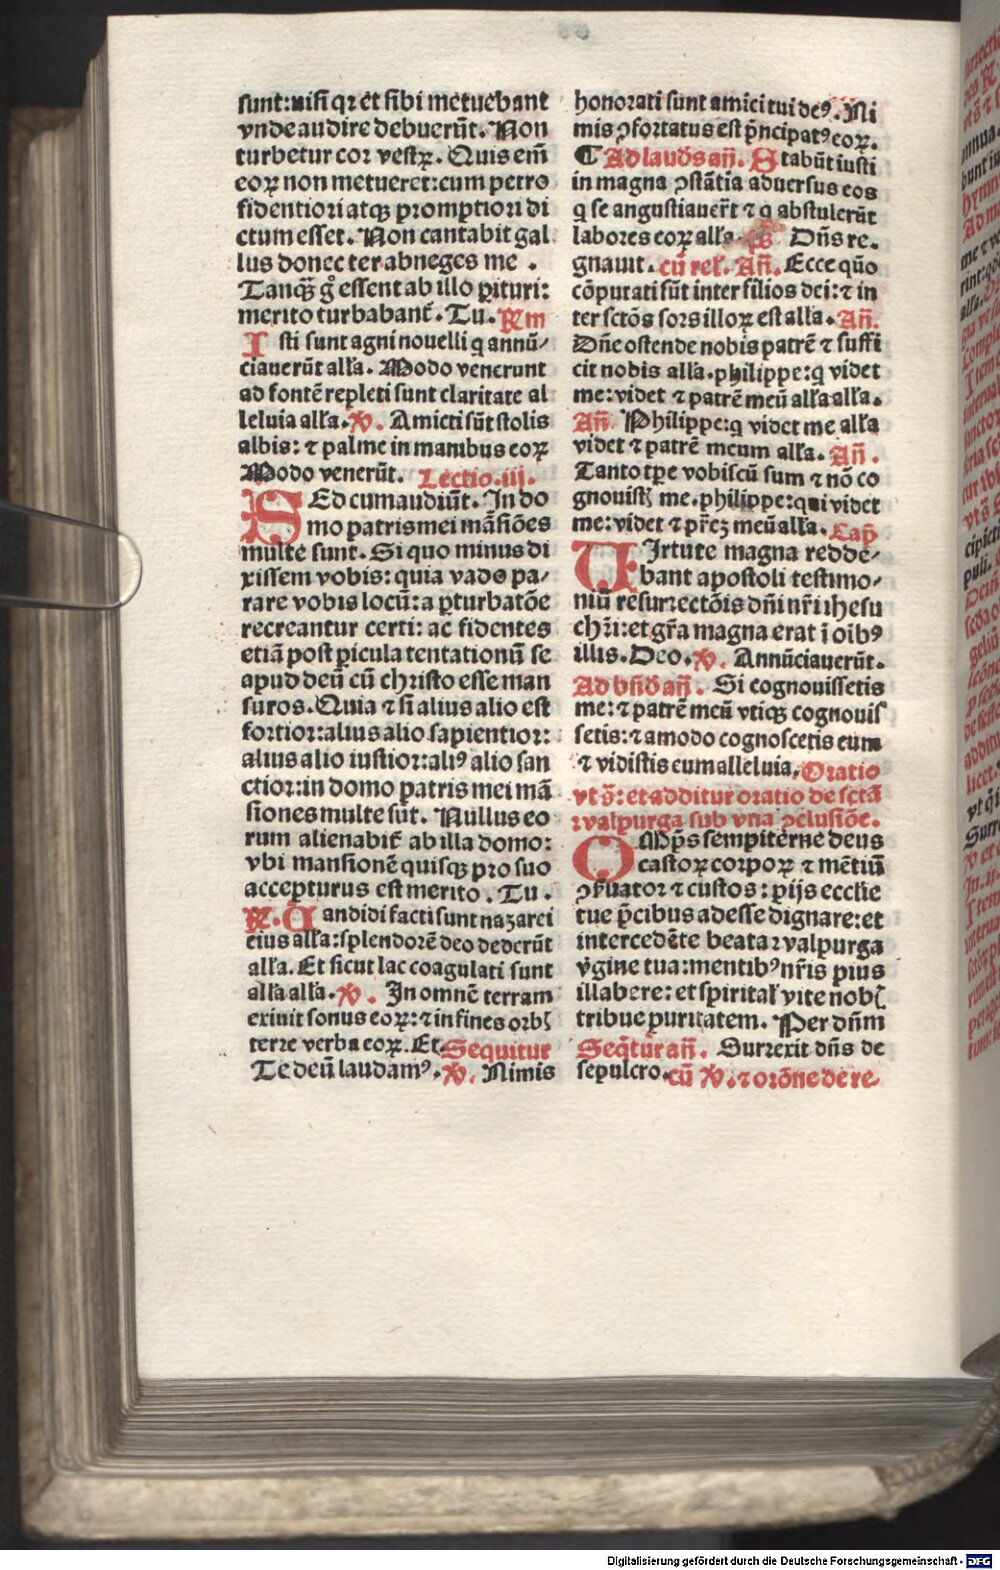 sunt:nisi qꝛ et sibi metuebant
vnde audire debuerūt. Non
turbetur cor vestꝝ. Quis em̄
eoꝝ non metueret:cum petro
fidentiori atqꝫ promptiori di
ctum esset. Non cantabit gal
lus donec ter abneges me .
Tanqꝫ g̊ essent ab illo ꝑituri:
merito turbabant̄. Tu. Rm̄
Isti sunt agni nouelli q annū/
ciauerūt alła. Modo venerunt
ad fontē repleti sunt claritate al
leluia alła. ℣. Amicti sūt stolis
albis: ⁊ palme in manibus eoꝝ
Modo venerūt. Lectio.iij.
SEd cum audiūt. In do
mo patris mei māsiōes
multe sunt. Si quo minus di
xissem vobis: quia vado pa/
rare vobis locū: a ꝑturbatōe
recreantur certi: ac fidentes
etiā post ꝑicula tentationū se
apud deū cū christo esse man
suros. Quia ⁊ si alius alio est
fortior: alius alio sapientior:
alius alio iustior: aliꝰ alio san
ctior: in domo ꝑatris mei mā
siones multe sūt. Nullus eo
rum alienabit̄ ab illa domo:
vbi mansionē quisqꝫ pro suo
accepturus est merito. Tu.
R. Candidi facti sunt nazarei
eius alła: splendorē deo dederūt
alła. Et sicut lac coagulati sunt
alła alła. ℣. In omnē terram
exiuit sonus eoꝝ: ⁊ in fines orbꝭ
terre verba eoꝝ. Et. Sequitur
Te deū laudamꝰ. ℣. Nimis
honorati sunt amici tui deꝰ. Ni
mis ꝯfortatus est p̄ncipatꝰ eoꝝ.
¶ Ad laud̄s an̄. Stabūt iusti
in magna ꝯstātia aduersus eos
q se angustiauer̄t ⁊ q abstulerūt
labores eoꝝ alła. Dn̄s re.
gnauit. cū rel. An̄. Ecce quō
cōputati sūt inter filios dei: ⁊ in
ter sctōs sors illoꝝ est alła. An̄.
Dn̄e ostende nobis patrē ⁊ suffi
cit nobis alła. philippe: q videt
me: videt ⁊ patrē meū alła alła.
An̄. Philippe: q videt me alła
videt ⁊ patrē meum alła. An̄.
Tanto tp̄e vobiscū sum ⁊ nō co
gnouistꝭ me. philippe: qui videt
me: videt ⁊ pr̄eꝫ meū alła. Cap̄
VIrtute magna redde/
bant apostoli testimo/
niū resurrectōis dn̄i nr̄i ihesu
chr̄i: et gr̄a magna erat ī oībꝰ
illis. Deo. ℣. Annūciauerūt.
Ad bn̄d̄ an̄. Si cognouissetis
me: ⁊ patrē meū vtiqꝫ cognouis
setis: ⁊ amodo cognoscetis eum
⁊ vidistis eum alleluia. Oratio
vt s̄: et additur oratio de sctā
walpurga sub vna ꝯclusiōe.
OMp̄s sempiterne deus
castoꝝ corpoꝝ ⁊ mētiū
ꝯẜuator ⁊ custos: pijs ecclie
tue p̄cibus adesse dignare: et
intercedēte beata walpurga
v̄gine tua: mentibꝰ nr̄is pius
illabere: et spirital̄ vite nobꝭ
tribue puritatem. Per dn̄m
Seq̄tur an̄. Surrexit dn̄s de
sepulcro. cū ℣. ⁊ orōne de re
Digitalisierung gefördert durch die Deutsche Forschungsgemeinschaft - DFG